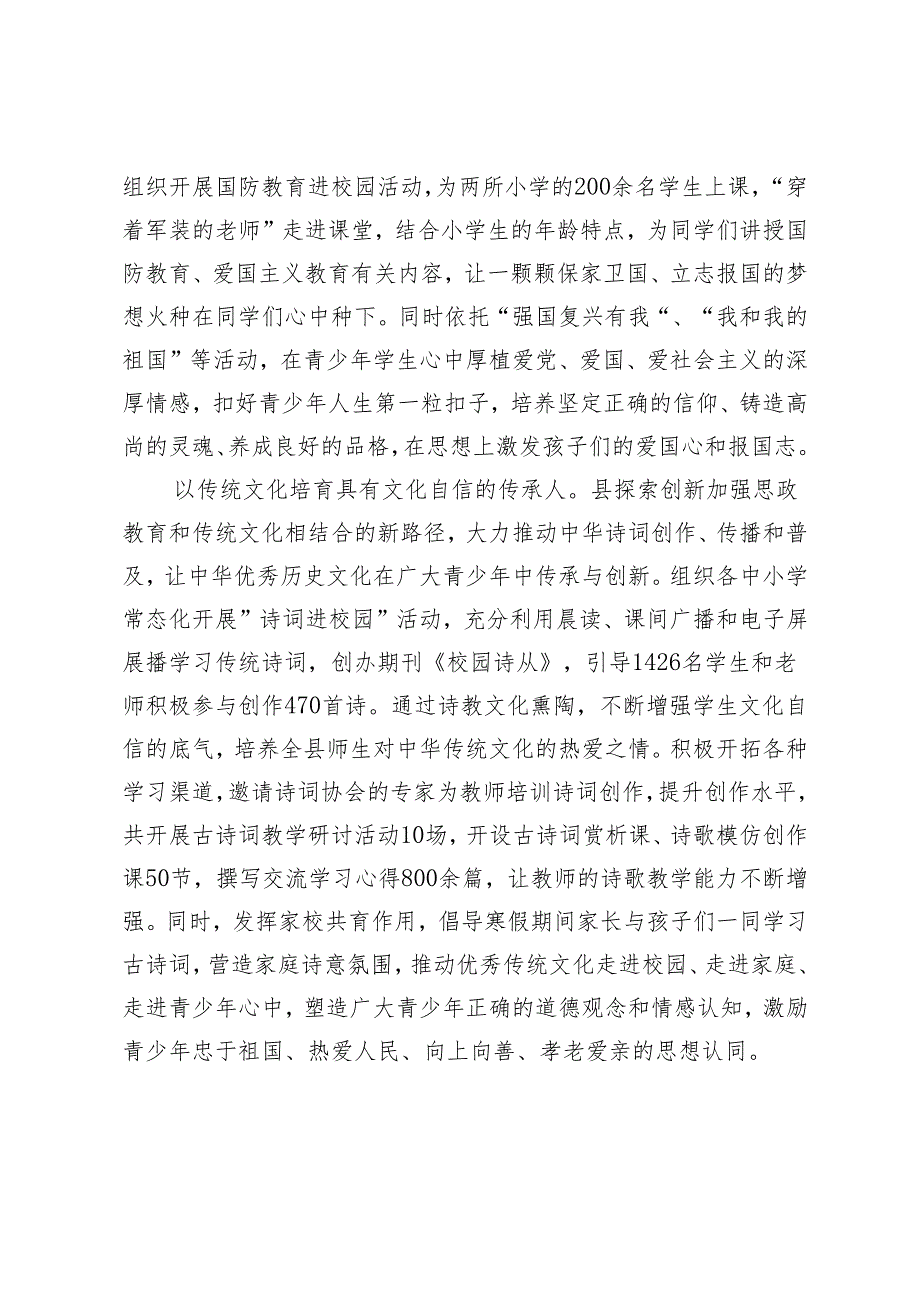 组织开展国防教育进校园活动，为两所小学的200余名学生上课，“穿
着军装的老师”走进课堂，结合小学生的年龄特点，为同学们讲授国
防教育、爱国主义教育有关内容，让一颗颗保家卫国、立志报国的梦
想火种在同学们心中种下。同时依托“强国复兴有我“、“我和我的
祖国”等活动，在青少年学生心中厚植爱党、爱国、爱社会主义的深
厚情感，扣好青少年人生第一粒扣子，培养坚定正确的信仰、铸造高
尚的灵魂、养成良好的品格，在思想上激发孩子们的爱国心和报国志。
以传统文化培育具有文化自信的传承人。县探索创新加强思政
教育和传统文化相结合的新路径，大力推动中华诗词创作、传播和普
及，让中华优秀历史文化在广大青少年中传承与创新。组织各中小学
常态化开展”诗词进校园”活动，充分利用晨读、课间广播和电子屏
展播学习传统诗词，创办期刊《校园诗从》，引导1426名学生和老
师积极参与创作470首诗。通过诗教文化熏陶，不断增强学生文化自
信的底气，培养全县师生对中华传统文化的热爱之情。积极开拓各种
学习渠道，邀请诗词协会的专家为教师培训诗词创作，提升创作水平，
共开展古诗词教学研讨活动10场，开设古诗词赏析课、诗歌模仿创作
课50节，撰写交流学习心得800余篇，让教师的诗歌教学能力不断增
强。同时，发挥家校共育作用，倡导寒假期间家长与孩子们一同学习
古诗词，营造家庭诗意氛围，推动优秀传统文化走进校园、走进家庭、
走进青少年心中，塑造广大青少年正确的道德观念和情感认知，激励
青少年忠于祖国、热爱人民、向上向善、孝老爱亲的思想认同。